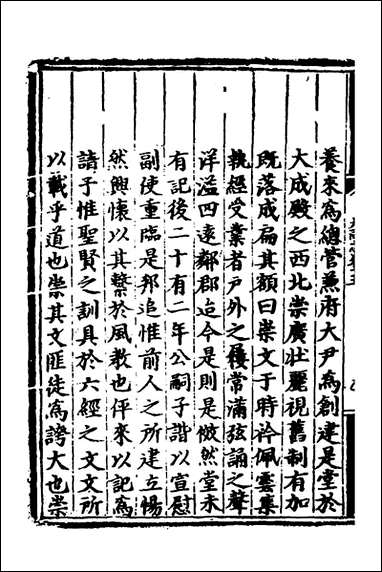 養來爲總管兼府大尹爲創建是堂於
大成殿之西北崇廣壯麗視舊制有加
既落成扁其額曰崇文于時衿佩雲集
執經受業者戶外之屨常滿弦誦之聲
洋溢四遠鄰郡迄今是則是傚然堂未
有記後二十有二年公嗣子諧以宣慰
副使重臨是邦追惟前人之所建立惕
然興懷以其繫於風教也伻來以記爲
請予惟聖賢之訓具於六經之文文所
以載乎道也崇其文匪徒爲誇大也崇